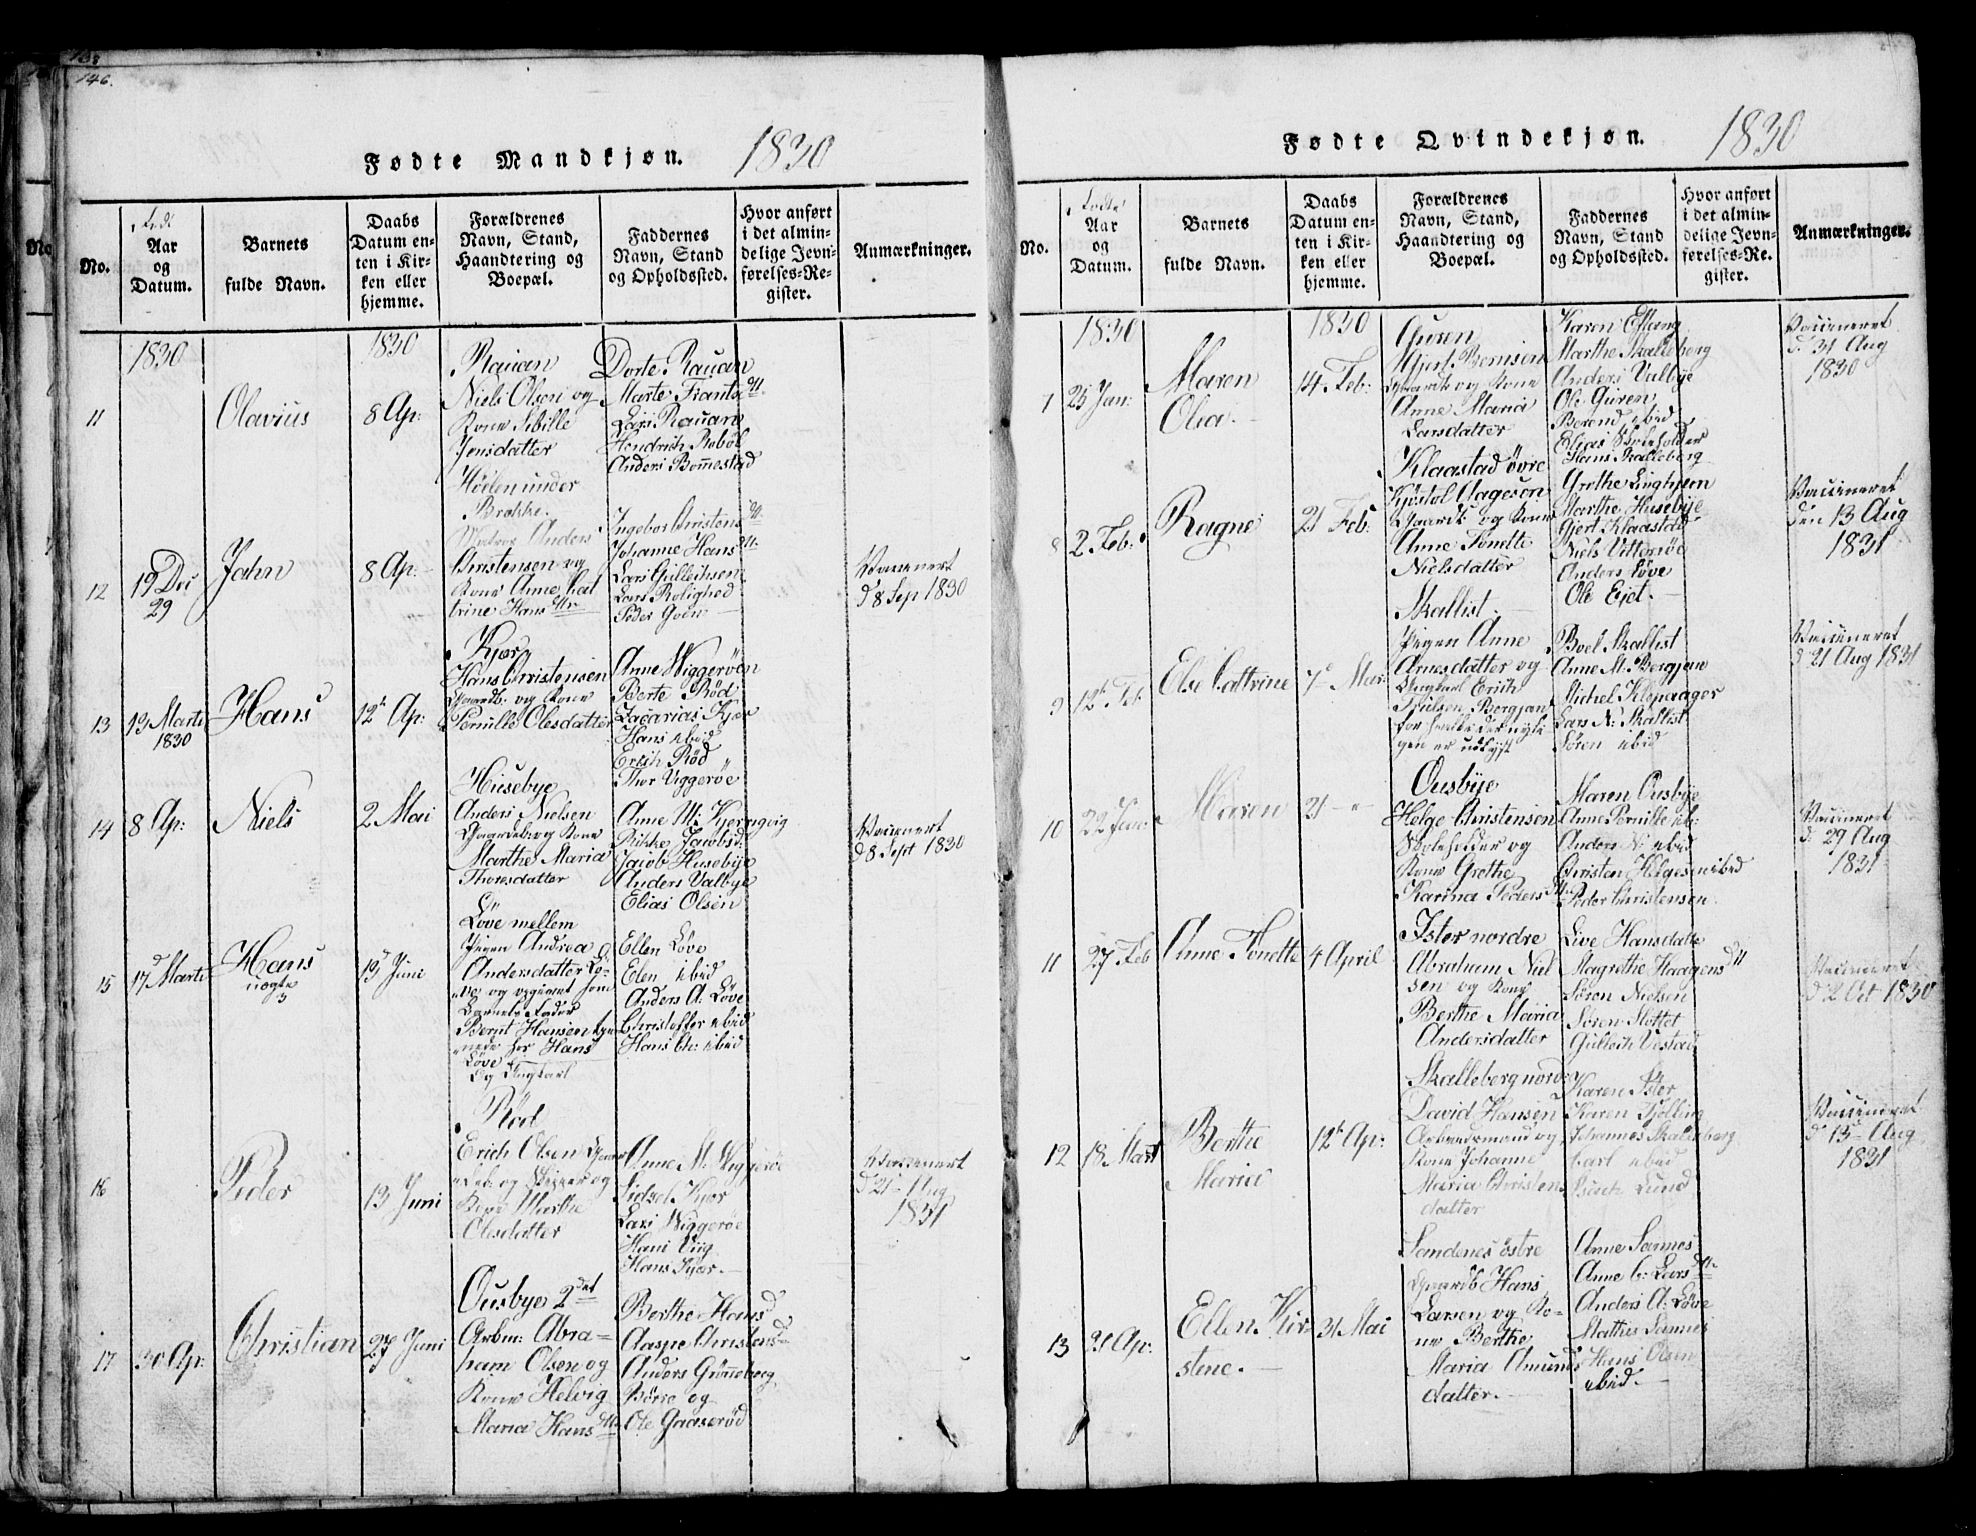 146.
Fødte Mandkjøn. 1830
No.
Aar
og
Datum.
Barnets
fulde Navn.
Daabs
Datum en-
ten i Kir-
ken eller
hjemme.
Forældrenes
Navn, Stand,
Haandtering og
Boepæl.
Faddernes
Navn, Stand
og Opholdssted.
Hvor anført
i det almin-
delige Jevn-
førelses-Re-
gister.
Anmærkninger.
1830
1830
11
Olavius
8 Ap:
Rauan
Niels Olsen og
Kone Sibille
Jensdatter
Dorte Rauan
Marte Frants
Lars Rauan
Hendrich Rebol
Anders Bommestad
12
19 Dec
29
Jahn
8 Ap:
Høelen under
Brekke.
Anders
Christensen og
Kone Anne Cat
trine Hans
Ingebor Christens
Johanne Hans
Lars Gulleichsen
Lars Rolighed
Peder Goen
Vaccinert
d 8 Sep 1830
13
19 Marti
1830
Hans
12t Ap:
Kjær
Hans Christensen
Gaardb. og Kone
Pernille Olesdatter
Anne Wiggerøen
Berte Rød
Zacarias Kjær
Hans ebid
Erich Rød
Thor Viggerøe
14
8 Ap:
Niels
2 Mai
Husebye
Anders Nielsen
Gaardeb og Kone
Marthe Maria
Thoresdatter
Anne M: Kjerringvig
Rikke Jacobsd:
Jacob Husebye
Anders Valbye
Elias Olsen
Vaccinert
d 8 Sept 1830
15
17d Marti
Hans
uægte
13d Juni
Løve mellem
Pigen Andrea
Andersdatter Lø-
ve og opgivet som
Barnets Fader
Bernt Hansen tje-
nende hos Hans
Løve
og Ungkarl
Ellen Løve
Elen ebid
Anders A: Løve
Christoffer ebid
Hans Ch: ebid
16
Peder
13 Juni
Rød
Erich Olsen Gaar
deb og Skipper og
Kone Marthe
Olesdatter
Anne M: Wiggerøe
Sidsel Kjær
Lars Wiggerøe
Hans Viig
Hans Kjær.
Vaccinert
d 21 Aug
1831
17
30 Ap:
Christian
27 Juni
Ousbye 2det
Arbm: Abra-
ham Olsen og
Kone Helvig
Maria Hans
Berthe Hans
Aaspe Christens
Anders Grønneberg
Børre og
Ole Gaaserød
Fødte Qvindekjøn. 1830
No.
Fødte
Aar
og
Datum.
Barnets
fulde Navn.
Daabs
Datum en-
ten i Kir-
ken eller
hjemme.
Forældrenes
Navn, Stand,
Haandtering og
Boepæl.
Faddernes
Navn, Stand
og Opholdssted.
Hvor anført
i det almin-
delige Jevn-
førelses-Re-
gister.
Anmærkninger.
1830
1830
7
25 Jan:
Maren
Olea.
14 Feb:
Guren
Gjert Bernsen
Gaardb og Kone
Anne Maria
Larsdatter
Karen Eftang
Marthe Skalleberg
Anders Valbye
Ole Guren
Berend ebid
Elias Skoeholder
Hans Skalleberg
Vaccineret
d: 31 Aug
1830
8
2 Feb:
Ragne
21 Feb:
Klaastad øvre
Kjøstol Aageson
Gaardb og Kone
Anne Tonette
Nielsdatter
Grethe Linghjem
Marthe Husebye
Gjert Klaastad
Niels Vittersøe
Anders Løve
Ole Ejet.
Vaccineret
den 13 Aug
1831
9
12t Feb
Else Cattrine
7de Mar:
Skallist.
Pigen Anne
Arnesdatter og
Ungkarl Erich
Trulsen Bergjan
Boel Skallist
Anne M. Bergjan
Michel Klopaager
Lars N: Skallist
Søren ebid
Vaccineret
d 21 Aug 1831
10
22 Janu
Maren
21 - " -
Ousbye
Helge Christensen
Skoleholder og
Kone Grethe
Karina Peders
Maren Ousbye
Anne Pernille eb:
Anders N: ebid
Christen Helgesen ebid
Peder Christensen
Vaccineret
d: 29 Aug
1831
11
27 Feb
Anne Tonette
4 April
Ister nordre
Abraham Niel
sen og Kone
Berthe Maria
Andersdatter
Live Hansdatte
Magrethe Haagens
Søren Nielsen
Søren Stottet
Gulleich Vestad
Vaccineret
d 2 Oct 1830
12
18 Mart
Berthe
Maria
12t Ap:
Skalleberg nord:
David Hansen
Arbeidsmand og
Kone Johanne
Maria Christens
datter
Karen Ister
Karen Tjølling
Johannes Skalleberg
Carl ebid
Lund
Vaccineret
d 13d Aug
1831
13
31 Ap:
Ellen Kir-
stine.
31 Mai
Sandenes østre
Gaardb Hans
Larsen og Ko-
ne Berthe
Maria Amunds
datter.
Anne Sannes
Anne C: Lars
Anders A: Løve
Mathis Sannes
Hans Olsen
ebid